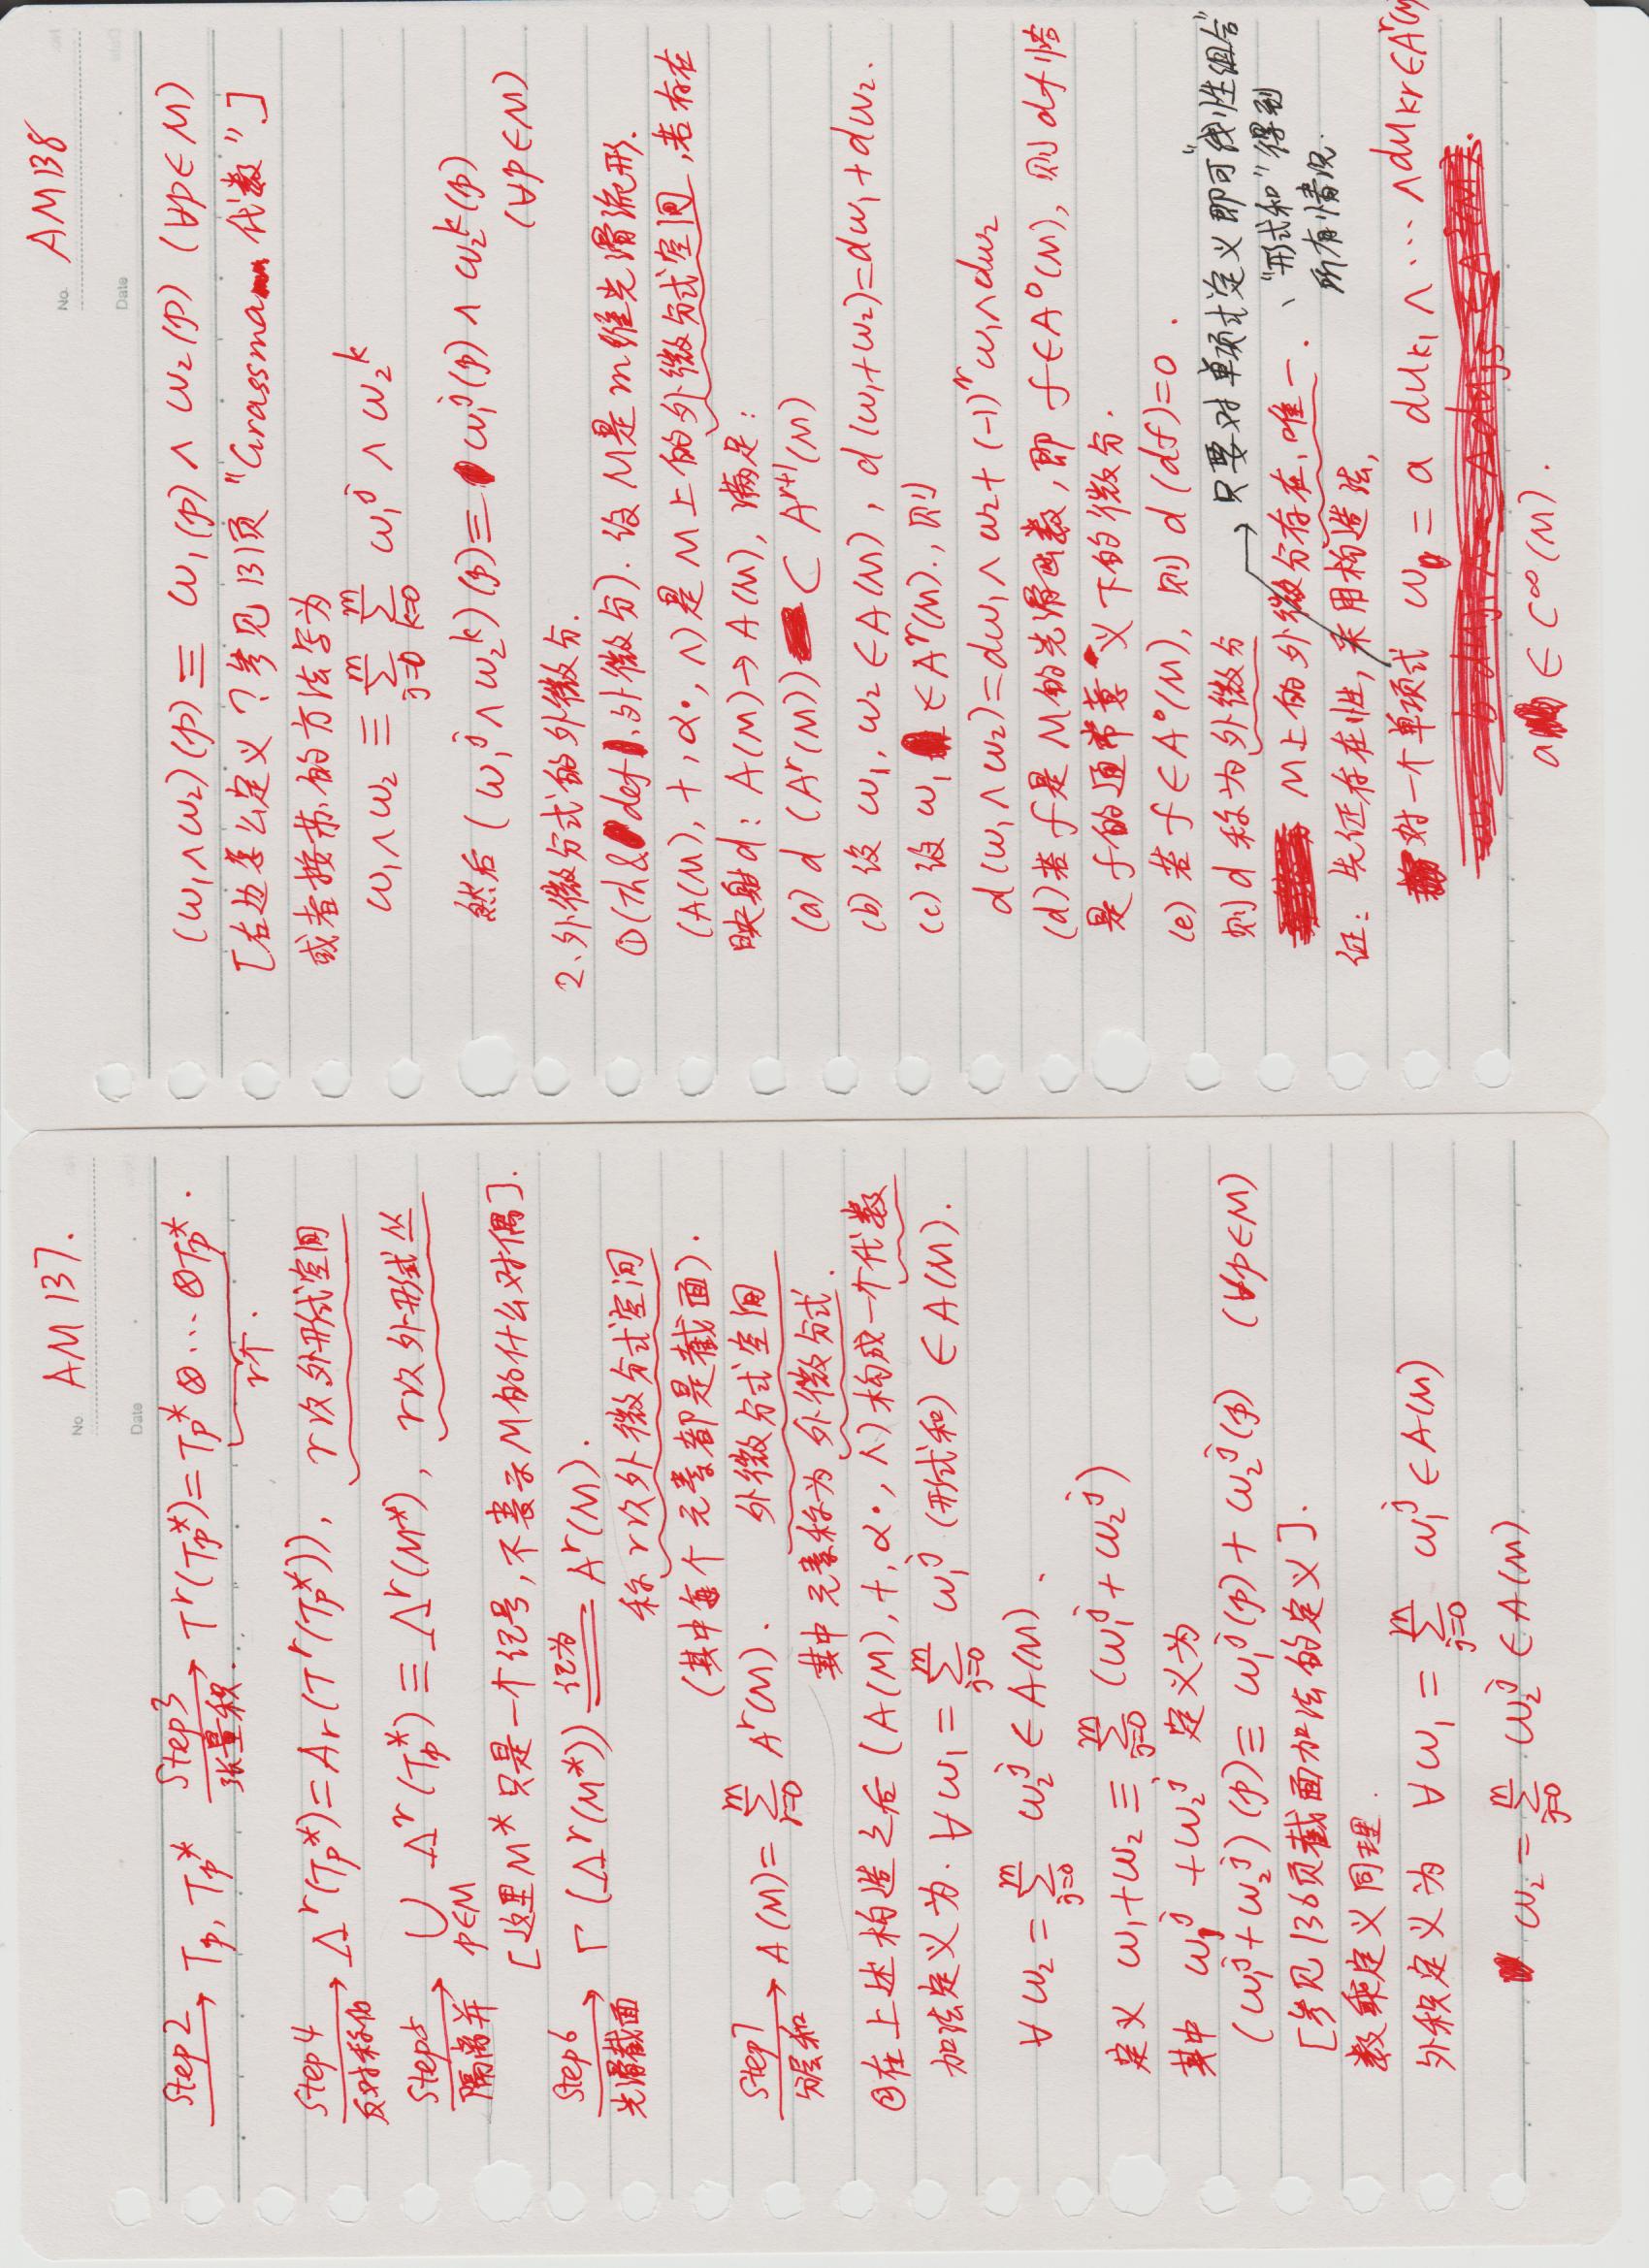 No. AM 137.
Date
Step2 → Tp, Tp* Step3 张量积. → T^r(Tp*) = Tp* ⊗ ⋯ ⊗ Tp* .
r个.
Step4 反对称化 → Λ^r(Tp*) = A_r(T^r(Tp*)), r次外形式空间
Step5 隔离并 → ∪_{p∈M} Λ^r(Tp*) ≡ Λ^r(M*), r次外形式丛
[这里M*只是一个记号,不表示M的什么对偶].
Step6 光滑截面 → Γ(Λ^r(M*)) 记为 A^r(M).
称r次外微分式空间
(其中每个元素都是截面).
Step7 分层和 → A(M) = ∑_{r=0}^{m} A^r(M). 外微分式空间
其中元素称为外微分式.
②在上述构造之后(A(M), +, α·, ∧)构成一个代数
加法定义为. ∀ω₁ = ∑_{j=0}^{m} ω₁^j (形式和) ∈ A(M).
∀ω₂ = ∑_{j=0}^{m} ω₂^j ∈ A(M).
定义 ω₁+ω₂ ≡ ∑_{j=0}^{m} (ω₁^j + ω₂^j)
其中 ω₁^j + ω₂^j 定义为
(ω₁^j + ω₂^j)(p) ≡ ω₁^j(p) + ω₂^j(p) (∀p∈M)
[参见136页截面加法的定义].
数乘定义同理.
外积定义为 ∀ω₁ = ∑_{j=0}^{m} ω₁^j ∈ A(M)
ω₂ = ∑_{j=0}^{m} ω₂^j ∈ A(M)
No. AM138
Date
(ω₁∧ω₂)(p) ≡ ω₁(p) ∧ ω₂(p) (∀p∈M)
[右边怎么定义?参见131页"Grassma 代数"]
或者按 的方法写为
ω₁∧ω₂ ≡ ∑_{j=0}^{m} ∑_{k=0}^{m} ω₁^j ∧ ω₂^k
然后 (ω₁^j ∧ ω₂^k)(p) ≡ ω₁^j(p) ∧ ω₂^k(p)
(∀p∈M)
2、外微分式的外微分.
①(Th & def, 外微分). 设M是m维光滑流形.
(A(M), +, α·, ∧)是M上的外微分式空间,若存在
映射d: A(M)→A(M), 满足:
(a) d (A^r(M)) ⊂ A^{r+1}(M)
(b) 设 ω₁, ω₂ ∈ A(M), d(ω₁+ω₂)=dω₁+dω₂.
(c) 设 ω₁ ∈ A^r(M)., 则
d(ω₁∧ω₂)=dω₁∧ω₂+(-1)^r ω₁∧dω₂
(d) 若f是M的光滑函数,即 f∈A⁰(M), 则df恰
是f的通常意义下的微分.
(e) 若f∈A⁰(M), 则 d(df)=0.
则d称为外微分
→ 只要对单项式定义即可"线性组合"
、"形式和"得到
所有情况.
M上的外微分存在、唯一.
证: 先证存在性,采用构造法,
对一个单项式 ω = a du_{k₁} ∧ ⋯ ∧ du_{kr} ∈ A^r(M
a ∈ C^∞(M).